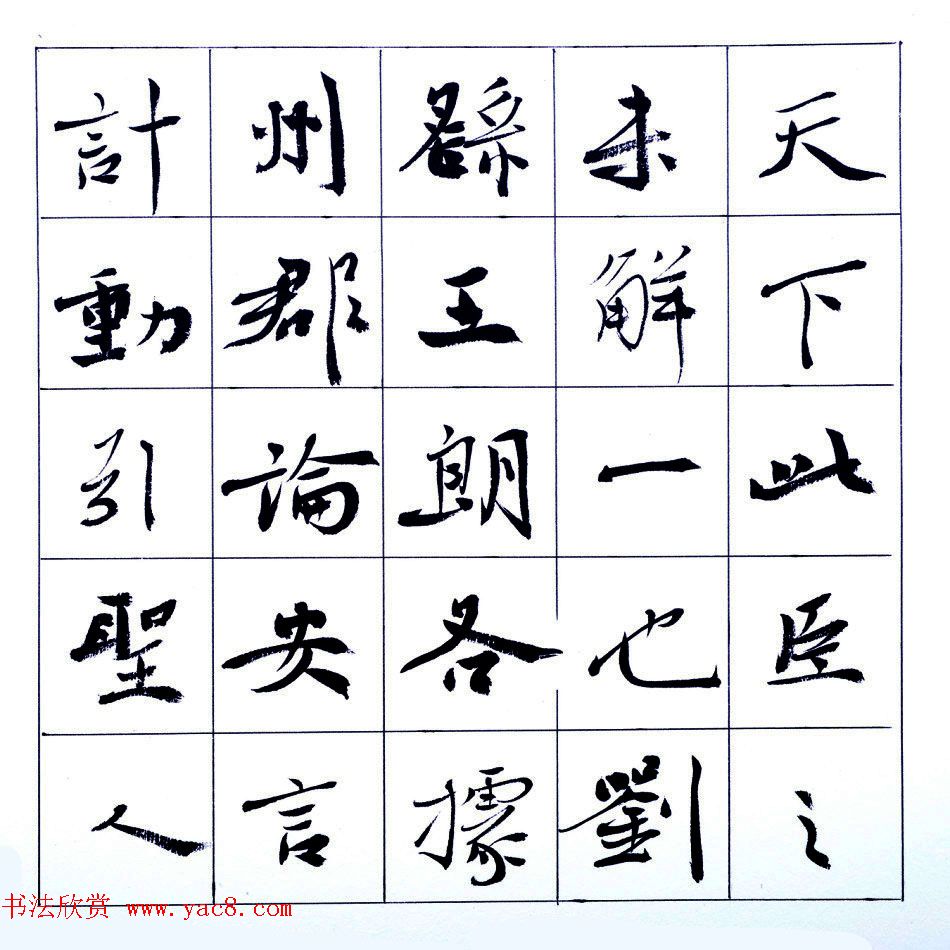 天下此臣之
未解一也劉
繇王朗各據
州郡論安言
計動引聖人
书法欣赏 www.yac8.com